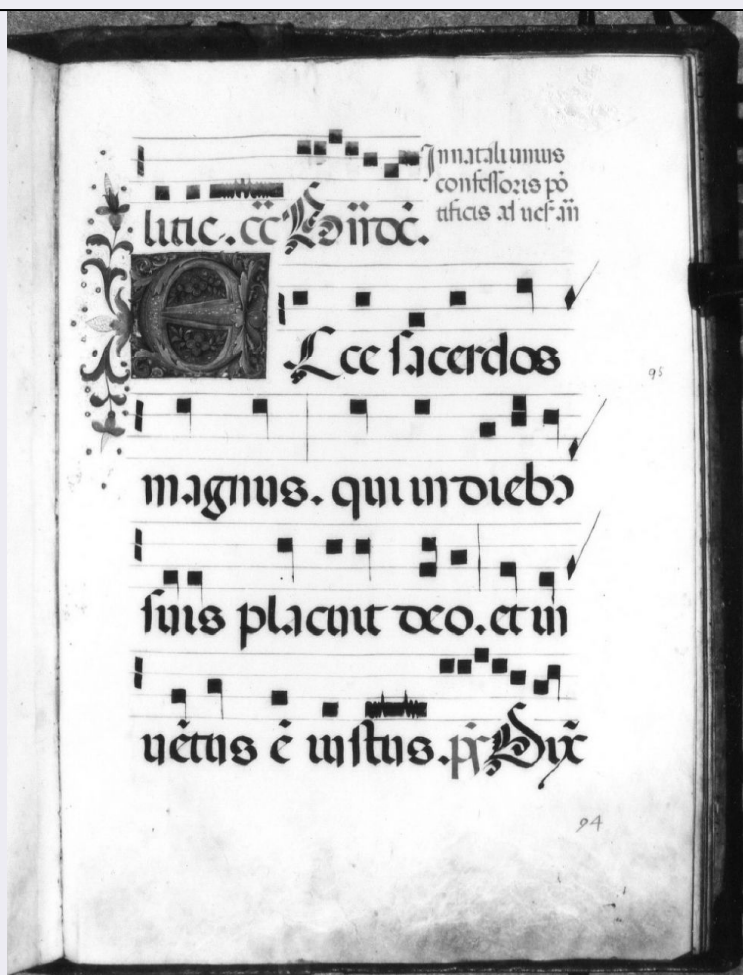 In natali unius
confessoris pō
tificis ad ues̄ añ
litie. cc̄ Bn̄doc̄.
Ecce sacerdos
95
magnus. qui in diebꝰ
suis placuit deo. et in
uētus ē iustus. ps̄ Dix̄
94